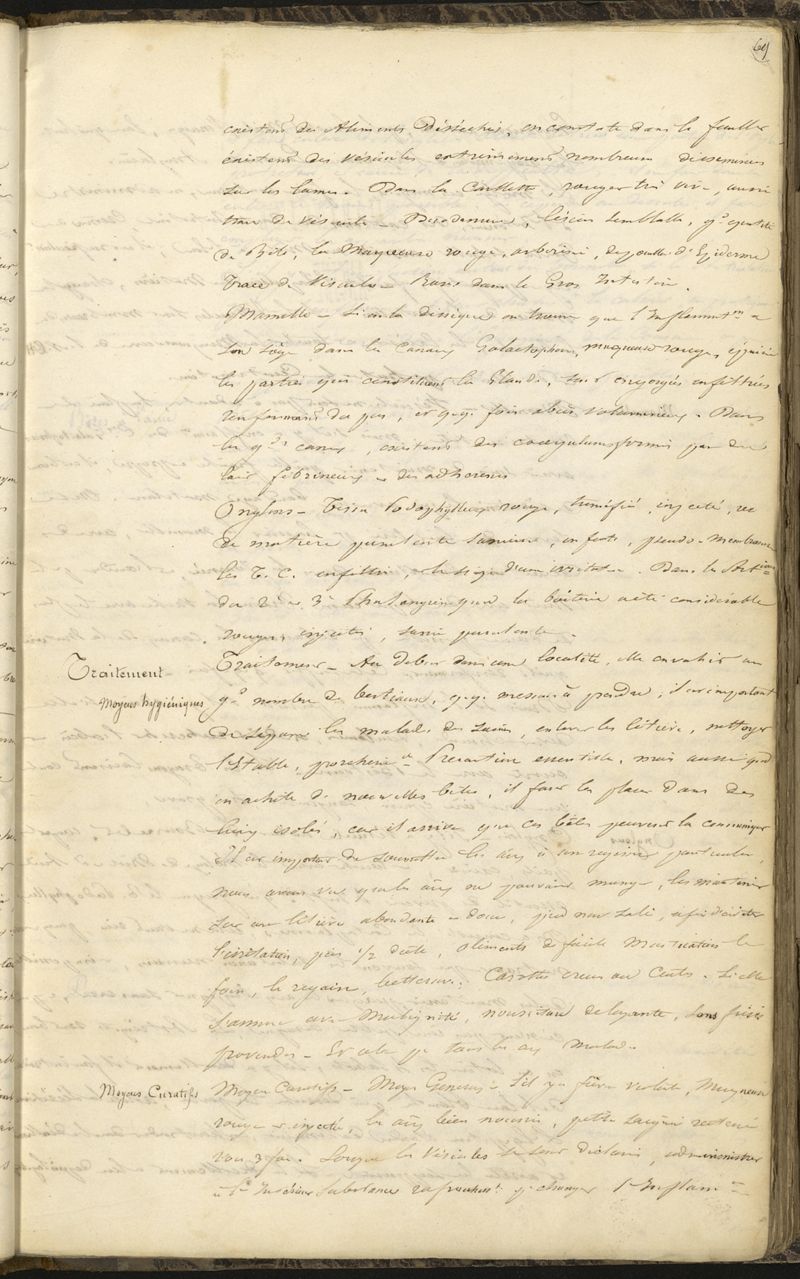 69
contenant des Aliments Désséchés, on constate dans le feuillet
existence des vésicules extrêmement nombreuses disséminées
sur les lames. Dans la Caillette, rougeur très vive, aussi
trace de vésicule. Duodenum, lésion semblable, gde quantité
de Bile, la Muqueuse rouge, arborisée, dépouillée d'Epiderme
Trace de Vésicules. Rares dans le Gros Intestin.
Mamelle - Si on la dissèque on trouve que l'Inflammton a
son siège dans les Canaux Galactophores, muqueuse rouge, épaissie
les parties qui constituent la Glande, sont engorgées infiltrées
renfermant du pus, et qq fois abcès volumineux. Dans
les gds canaux, existent des coagulums formés par du
lait fibrineux - des adhérences
Onglons - Tissu Podophylleux rouge, tuméfié, injecté,
de matière purulente sanieuse, infecte, pseudo-membranes
les T. C. infiltrés, Dans les Articons
du 2e et 3e Phalangien quand les boiterie a été considérable
rougeurs, injectées, sanie purulente.
Traitement
Traitement - Au Début dans une localité, elle envahit un
Moyens hygiéniques
gd nombre de bestiaux, qq mesures à prendre, il est important
de séparer les malades des sains, enlever les litières, nettoyer
l'Etable, porcherie &. Précaution essentielle, mais aussi qd
on achète de nouvelles bêtes, il faut les placer dans des
lieux isolés, car il arrive que ces bêtes peuvent la communiquer
Il est important de soumettre les aux à un régime particulier,
nous avons vu que les aux ne pouvaient manger, les maintenir
sur une litière abondante - douce, pied non sali, afin d'éviter
l'irritation, puis 1/2 diète, aliments de facile Mastication le
foin, le regain, betterave, Carottes crues ou Cuites. Si elle
s'annonce avec Malignité, nourriture délayante, sons frisés
provendes - Et cela pr tous les aux Malades.
Moyens Curatifs
Moyens Curatifs - Moyens Generaux - S'il y a fièvre violente, Muqueuse
rouge et injectée, les aux bien nourris, petite saignée réitérée
2 ou 3 fois. Lorsque les Vésicules se sont déclarées, administrer
à l'Intérieur Substances rafraichistes pr changer l'Inflamon